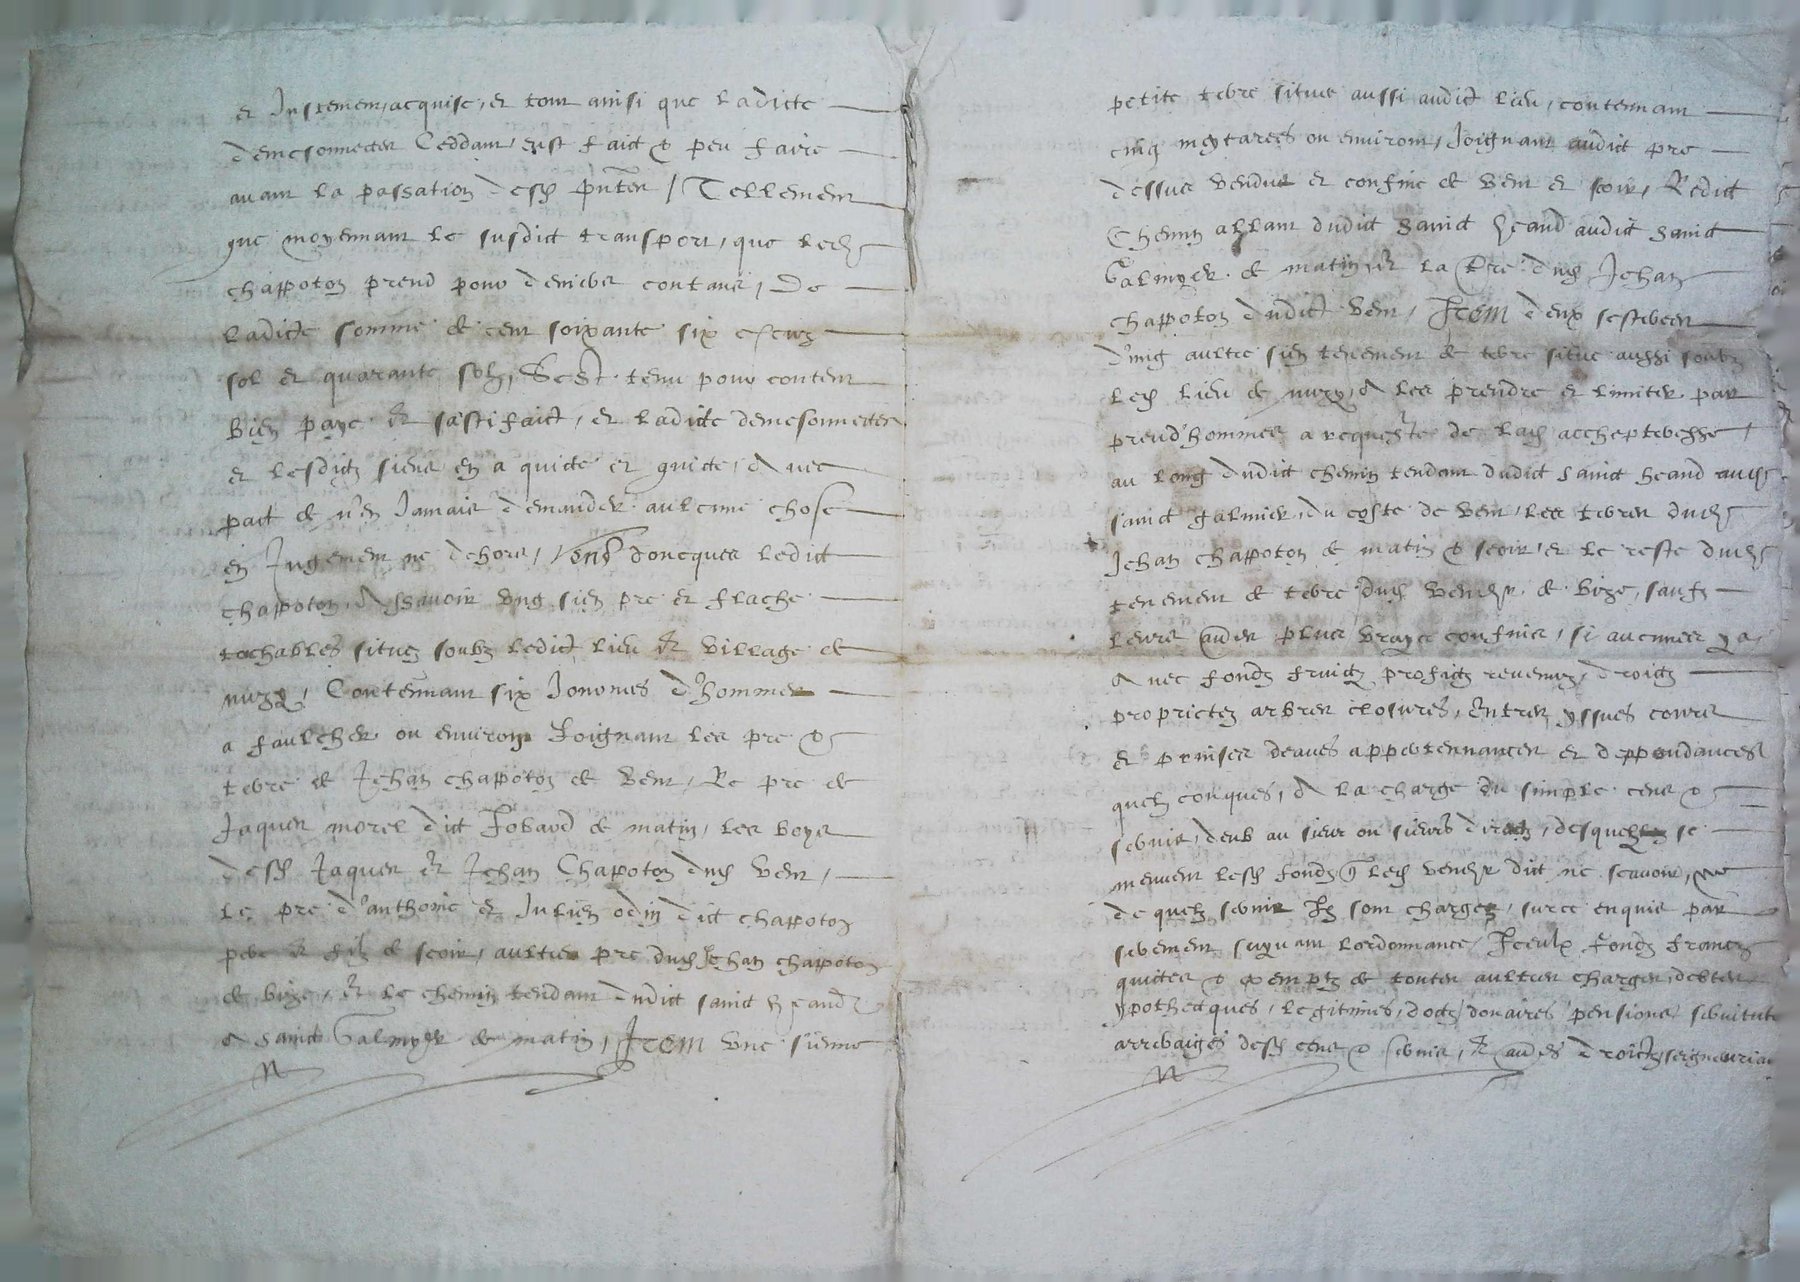 et Justement acquise, et tout ainsi que ladicte
demesonnectes Ceddant, eust faict & peu faire
avant la passation desd pntes / Tellement
que moyennant le susdict transport, que led
chappoton prend pour deniers contans, De
ladicte somme de cent soixante six escuz
sol et quarante solz, Sest tenu pour content
Bien paye et satisfaict, et ladicte demesonnectes
et lesdictz siens en a quicte et quicte, Avec
pact de n'en Jamais demander aulcune chose
en Jugement ne dehors, doncques ledict
chappoton, Assavoir ung sien pre et flache
tochables situez soubz ledict lieu et village de
Contennant six Jonomes d'hommes
a faulcher ou environ Joignant les pre &
terre de Jehan chappoton de Vent, Le pre de
Jaques morel dict Jobard de matin, les boys
desd Jaques et Jehan Chappoton dud vent,
Le pre d'anthoine et Julien odin dict chappoton
pere et filz de seoir, aultre pre dud Jehan chappoton
de bize, et le chemin tendant dudict sainct heand
A sainct Galmyer de matin, Item une sienne
petite terre situee aussi audict lieu, contennant
cinq meytarees ou environ, Joignant audict pre
dessus vendus et confine de vent et seoir, Ledict
Chemin allant dudict Sainct heand audict Sainct
Galmyer de matin, et la tre dud Jehan
chappoton dudict vent, Item deux sesterees
d'ung aultre sien tenement de terre situe aussi soubz
led lieu de A les prendre et limiter par
preud'hommes a requeste de lad accepteresse,
au long dudict chemin tendant dudict sainct heand aud
sainct galmier, du coste de vent, les terres dud
Jehan chappoton de matin & seoir, et le reste dud
tenement de terre dud vendr de bize, saufz
leurs au'es plus vrayes confins, si aucunes y a,
Avec fondz fruictz profictz revenuz, droictz
proprietez arbres closures, Entrees yssues cours
et prinses deaues appertennances et deppendances
quelzconques, A la charge du simple cens &
servis, deub au sieur ou sieurs directz, desquelz se
meuvent lesd fondz led vendr dict ne scavoir,
de quelz servis Ilz sont chargez, surce enquis par
serement suyvant lordonnance, Iceulx fondz francz
quictes & exemptz de toutes aultres charges, debtes
ypothecques, legitimes, dotz, donaires pensions servitute
arreraiges desd cens & servis, et au'es droictz seigneuriau